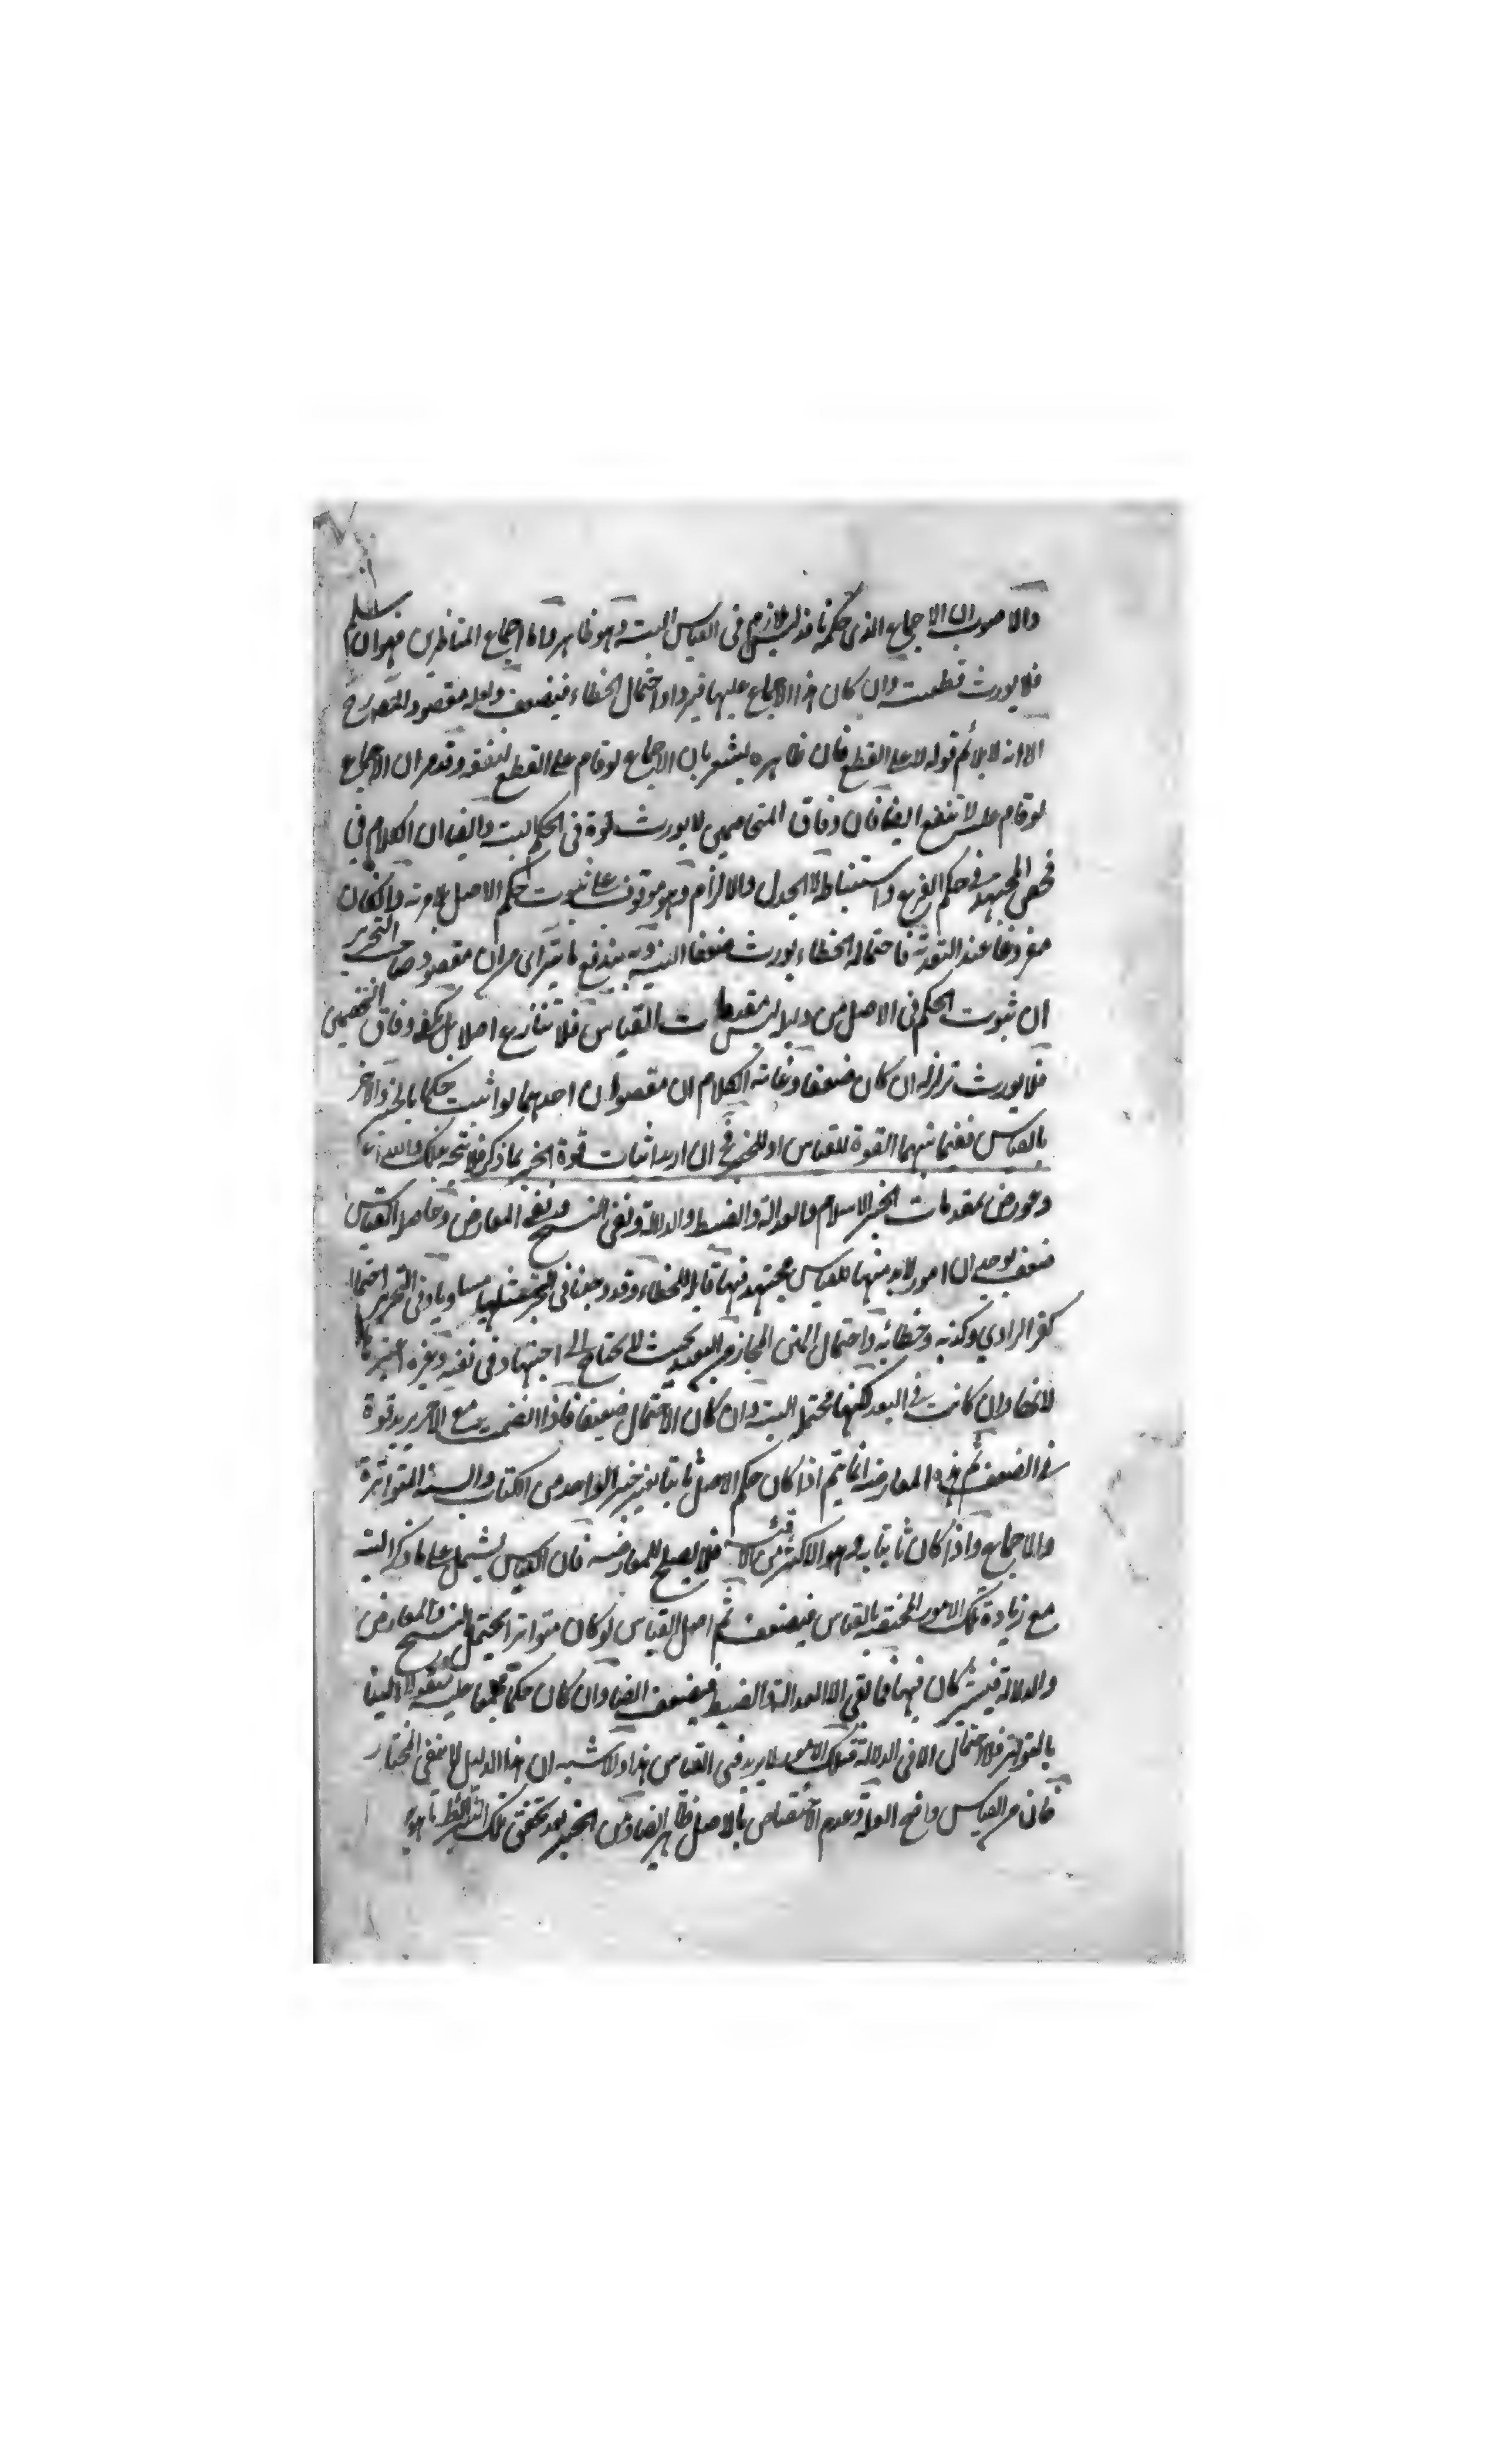 والاصوب ان الاجماع الذى حكمه نافذ ليس بلازم فى القياس البتة وهو ظاهر واما اجماع المناظرين فهو ان سلم
فلا يورث قطعيته وان كان هذا الاجماع عليها فيرداد احتمال الخطاء فيضعف ولعله مقصود المصرح
الا انه لا يلائم قوله لا على القطع فان ظاهره يشعر بان الاجماع لو قام على القطع لنفعه وقد مر ان الاجماع
لو قام عليه لا ينفع ايضا فان وفاق المتخاصمين لا يورث قوة فى الحكم البتة وايضا ان الكلام فى
فحص المجتهد فى حكم الفرع واستنباطه لا الجدل والالزام وهو موقوف على ثبوت حكم الاصل لا مرتبة وان كان
مفروغا عند التعدية فاحتمال الخطاء يورث ضعفا البتة وبه يندفع ما يتراى من ان مقصود صاحب التحرير
ان ثبوت الحكم فى الاصل من دليل ليس مقدمات القياس فلا تنازع اصلا بل يكفى وفاق الخصمين
فلا يورث تزلزله ان كان ضعفا وغاية الكلام ان مقصوده ان احدهما لو اثبت حكما بالخبر والاخر
بالقياس ففيما بينهما القوة للقياس او للخبر فح ان اريد اثبات قوة الخبر بما ذكر فلا يتجه
وعورض بمقدمات الخبر الاسلام والعدالة والضبط والدلالة ونفى النسخ ونفى المعارض وحاصله القياس
ضعف بوجدان امور لا بد منها للقياس مجتهد فيها قابلة للخطاء وقد وجدنا فى الخبر مثلها مساويا وفى التحرير احتمال
كفر الراوي وكذبه وخطائه واحتمال المتن المجاز من البعد بحيث لا يحتاج الى اجتهاد فى نفيه وغيره
لانها وان كانت فى البعد لكنها محتملة البتة وان كان الاحتمال ضعيفا فاذا انضمت مع الاخر يزيد قوة
فى الضعف ثم هذه المعارضة انما يتم اذا كان حكم الاصل ثابتا بغير خبر الواحد من الكتاب والسنة المتواترة
والاجماع واذا كان ثابتا به وهو الاكثر من الاقيسة فلا يصلح للمعارضة فان القياس يشتمل على ما ذكر البتة
مع زيادة تلك الامور المختصة بالقياس فيضعف ثم اصل القياس لو كان متواترا يحتمل النسخ والمعارض
والدلالة فيشتركان فيها فما بقي الا العدالة والضبط فيضعف ايضا وان كان حكما مجمعا عليه منقولا الينا
بالتواتر فلا احتمال الا فى الدلالة فتلك الامور لا يزيد فى القياس هذا والاشبه ان هذا الدليل لا ينفى المختار
فان من القياس واضح العلة وعدم الاختصاص بالاصل ظاهر ايضا ومن الخبر بعد تحقق تلك الشرائط ما هو